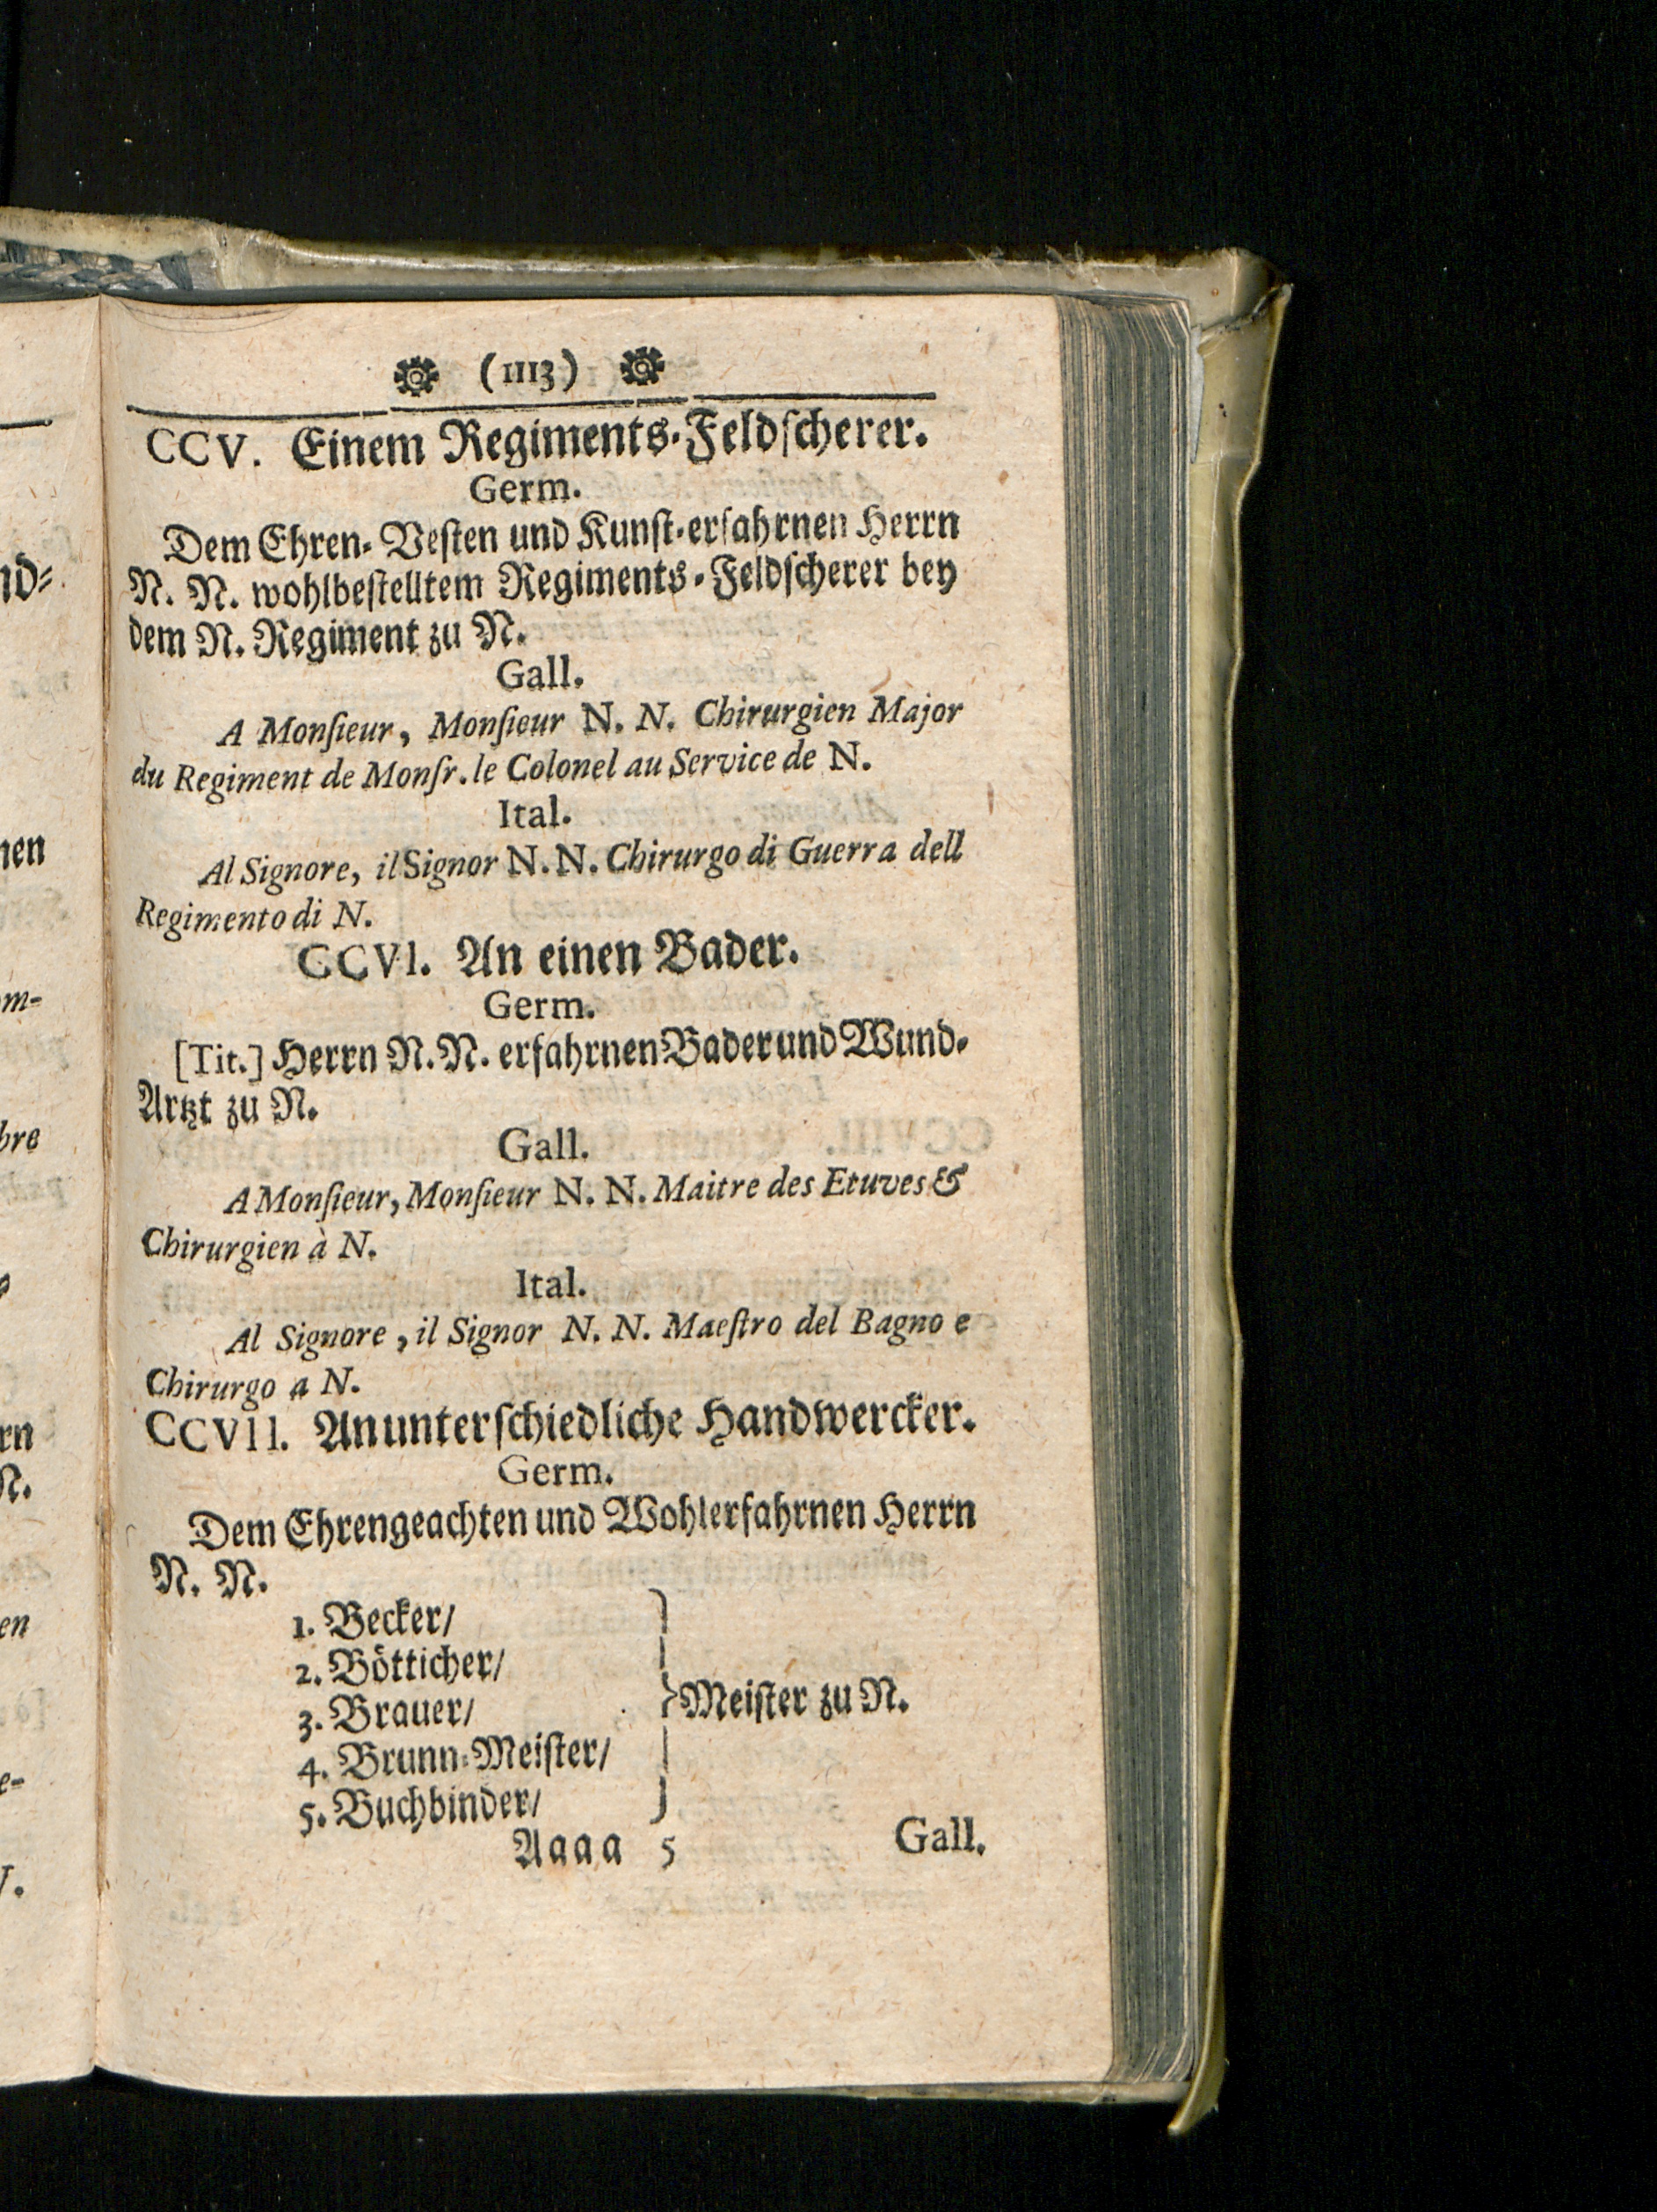 (1113)
CCV. Einem Regiments-Feldſcherer.
Germ.
Dem Ehren-Veſten und Kunſt-erfahrnen Herrn
N. N. wohlbeſtelltem Regiments-Feldſcherer bey
dem N. Regiment zu N.
Gall.
A Monſieur, Monſieur N. N. Chirurgien Major
du Regiment de Monſr. le Colonel au Service de N.
Ital.
Al Signore, il Signor N. N. Chirurgo di Guerra dell
Regimento di N.
CCVI. An einen Bader.
Germ.
[Tit.] Herrn N. N. erfahrnen Bader und Wund-
Artzt zu N.
Gall.
A Monſieur, Monſieur N. N. Maitre des Etuves &
Chirurgien à N.
Ital.
Al Signore, il Signor N. N. Maeſtro del Bagno e
Chirurgo a N.
CCVII. An unterſchiedliche Handwercker.
Germ.
Dem Ehrengeachten und Wohlerfahrnen Herrn
N. N.
1. Becker/
2. Bötticher/
3. Brauer/
Meiſter zu N.
4. Brunn-Meiſter/
5. Buchbinder/
Aaaa 5
Gall.